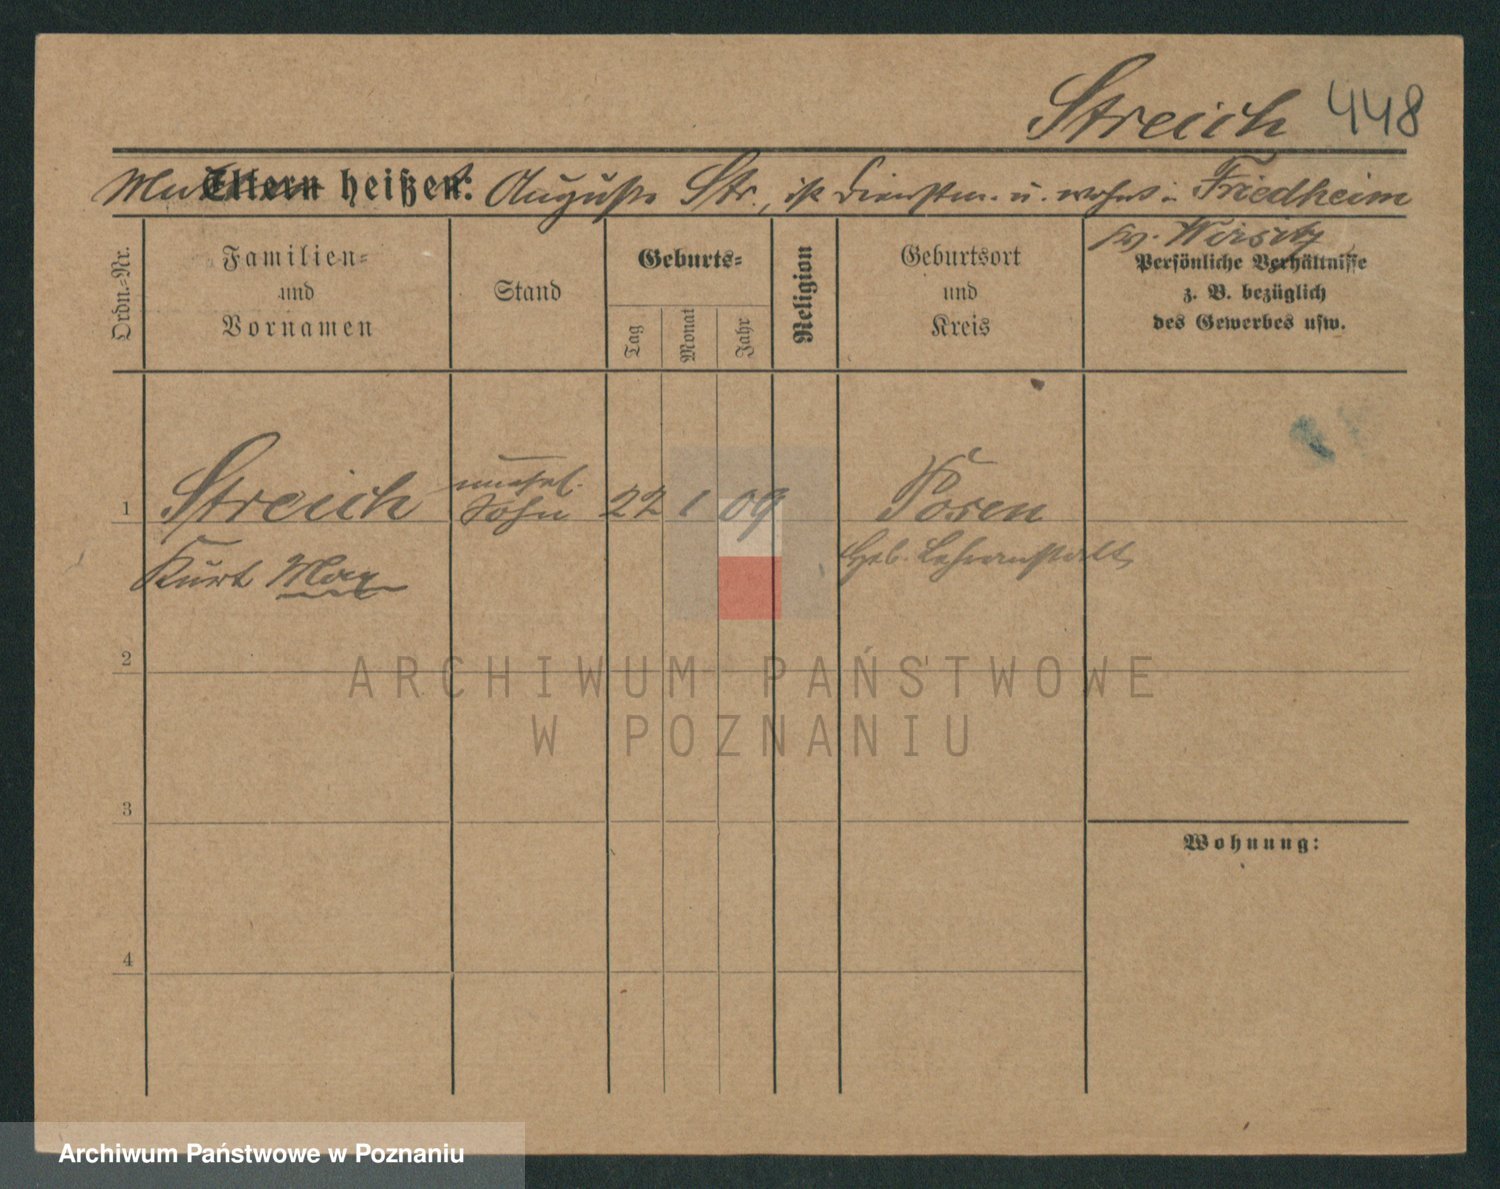 Streich 448
Mutter heißt: Auguste Str., ist Dienstm. u. wohnt in Friedheim
Kr. Wirsitz
Eltern heißen:
Ordn.-Nr.
Familien-
und
Vornamen
Stand
Geburts-
Tag
Monat
Jahr
Religion
Geburtsort
und
Kreis
Persönliche Verhältnisse
z. B. bezüglich
des Gewerbes usw.
1 Streich unehel. Sohn 22 1 09 Posen
Kurt Max Heb. Lehranstalt
2
3
4
Wohnung:
ARCHIWUM PAŃSTWOWE
W POZNANIU
Archiwum Państwowe w Poznaniu